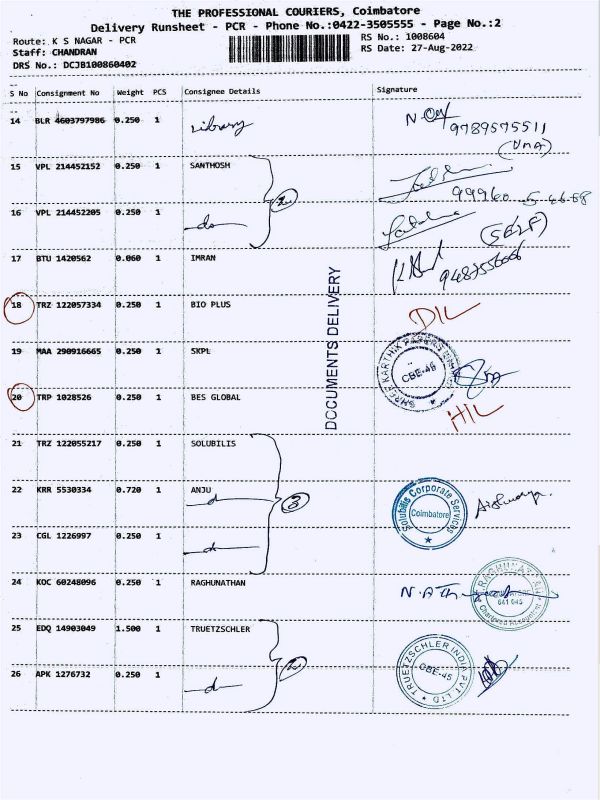 THE PROFESSIONAL COURIERS, Coimbatore
Delivery Runsheet - PCR - Phone No.:0422-3505555 - Page No.:2
Route: K S NAGAR - PCR
RS No.: 1008604
Staff: CHANDRAN
RS Date: 27-Aug-2022
DRS No.: DCJB100860402
S No Consignment No Weight PCS Consignee Details Signature
14 BLR 4603797986 0.250 1 Library
9789575511
15 VPL 214452152 0.250 1 SANTHOSH
2
16 VPL 214452205 0.250 1 do
(SELF)
17 BTU 1420562 0.060 1 IMRAN
DOCUMENTS DELIVERY
18 TRZ 122057334 0.250 1 BIO PLUS D/L
19 MAA 290916665 0.250 1 SKPL
CBE-45
20 TRP 1028526 0.250 1 BES GLOBAL H/L
21 TRZ 122055217 0.250 1 SOLUBILIS
22 KRR 5530334 0.720 1 ANJU
d
3
Solubilis Corporate Services
Coimbatore
Aishwarya
23 CGL 1226997 0.250 1 d
24 KOC 60248096 0.250 1 RAGHUNATHAN
Chartered Accountant
641 045
25 EDQ 14903049 1.500 1 TRUETZSCHLER
2
TRUETZSCHLER INDIA PVT LTD
CBE-45
26 APK 1276732 0.250 1 d